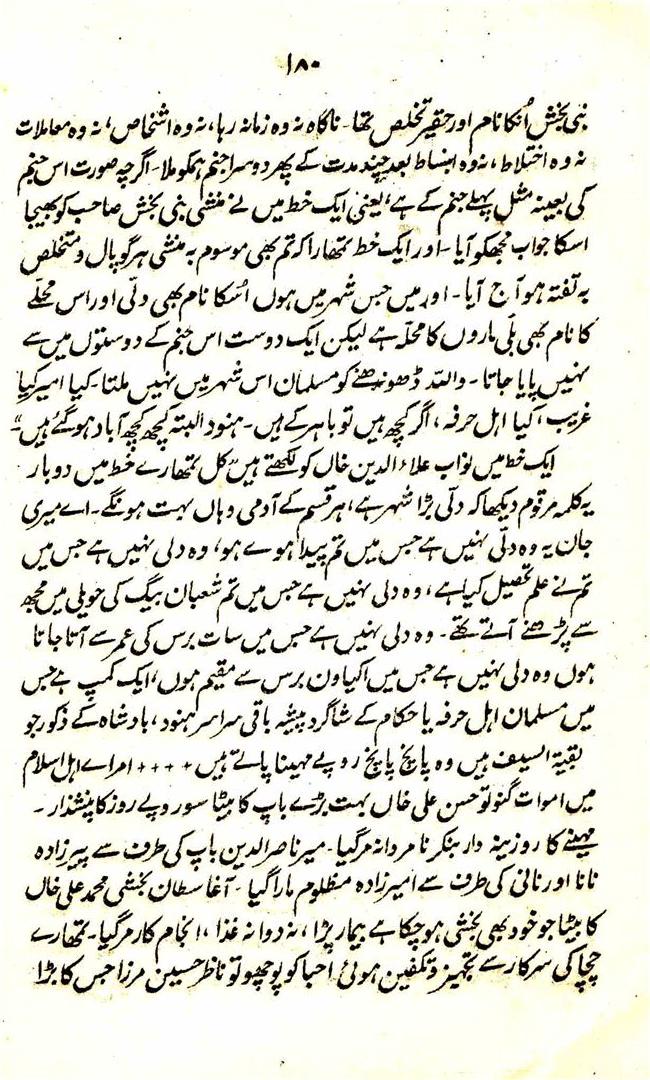 ۱۸۰
نبی بخش اُنکا نام اور حقیر تخلص تھا۔ ناگاہ نہ وہ زمانہ رہا، نہ وہ اشخاص، نہ وہ معاملات
نہ وہ اختلاط، نہ وہ انبساط بعد چند مدت کے پھر دوسرا جنم ہمکو ملا۔ اگرچہ صورت اس جنم
کی بعینہ مثل پہلے جنم کے ہے، یعنی ایک خط میں نے منشی بنی بخش صاحب کو بھیجا
اسکا جواب مجھکو آیا۔ اور ایک خط تمھارا کہ تم بھی موسوم بہ منشی ہرگوپال و متخلص
بہ تفتہ ہو آج آیا۔ اور میں جس شہر میں ہوں اُسکا نام بھی دلّی اور اس محلّے
کا نام بھی بلّی ماروں کا محلّہ ہے لیکن ایک دوست اس جنم کے دوستوں میں سے
نہیں پایا جاتا۔ واللہ ڈھونڈھنے کو مسلمان اس شہر میں نہیں ملتا۔ کیا امیر کیا
غریب، کیا اہل حرفہ، اگر کچھ ہیں تو باہر کے ہیں۔ ہنود البتہ کچھ کچھ آباد ہو گئے ہیں"۔
ایک خط میں نواب علاء الدین خاں کو لکھتے ہیں "کل تمھارے خط میں دو بار
یہ کلمہ مرقوم دیکھا کہ دلّی بڑا شہر ہے، ہر قسم کے آدمی وہاں بہت ہونگے۔ اے میری
جان یہ وہ دلّی نہیں ہے جس میں تم پیدا ہوے ہو، وہ دلی نہیں ہے جس میں
تم نے علم تحصیل کیا ہے، وہ دلی نہیں ہے جس میں تم شعبان بیگ کی حویلی میں مجھ
سے پڑھنے آتے تھے۔ وہ دلی نہیں ہے جس میں سات برس کی عمر سے آتا جاتا
ہوں وہ دلی نہیں ہے جس میں اکیاون برس سے مقیم ہوں، ایک کمپ ہے جس
میں مسلمان اہل حرفہ یا حکام کے شاگرد پیشہ باقی سراسر ہنود، بادشاہ کے ذکور جو
بقیۃ السیف ہیں وہ پانچ پانچ روپے مہینا پاتے ہیں ++++ امراے اہل اسلام
میں اموات گنو تو حسن علی خاں بہت بڑے باپ کا بیٹا سو روپے روز کا پنشندار۔
مہینے کا روزینہ دار بنکر نامرادانہ مرگیا۔ میر ناصر الدین باپ کی طرف سے پیرزادہ
نانا اور نانی کی طرف سے امیرزادہ مظلوم مارا گیا۔ آغا سطان بخشی محمد علی خاں
کا بیٹا جو خود بھی بخشی ہو چکا ہے بیمار پڑا، نہ دوا نہ غذا، انجام کار مرگیا۔ تمھارے
چچا کی سرکار سے تجہیز و تکفین ہوئی، احبا کو پوچھو تو ناظر حسین مرزا جس کا بڑا